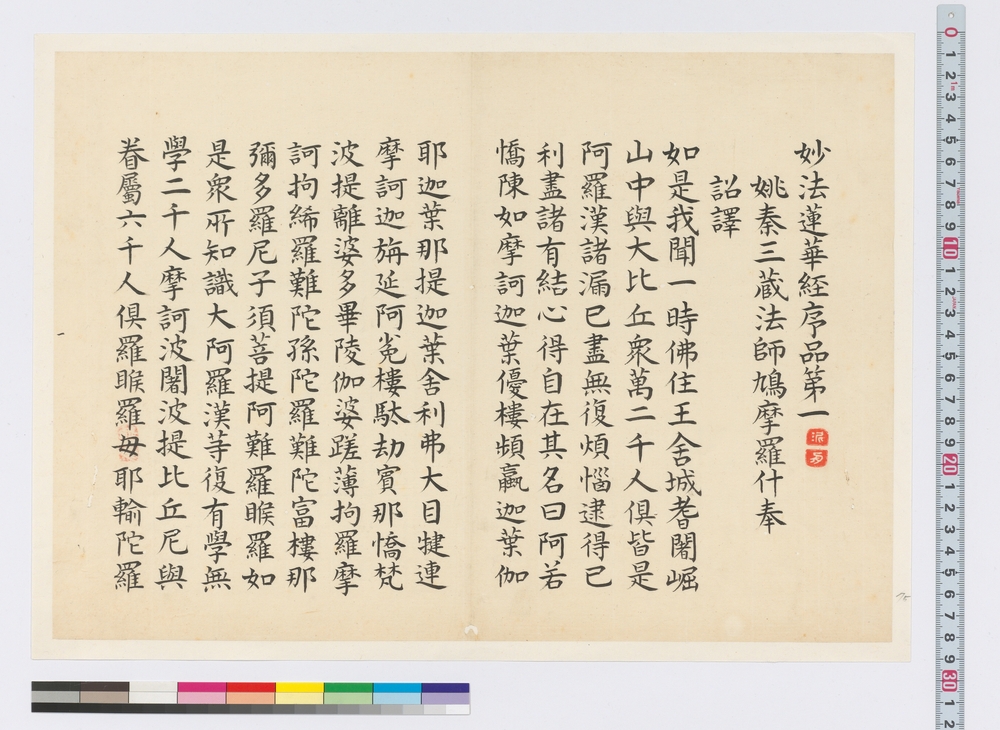 妙法蓮華経序品第一
姚秦三蔵法師鳩摩羅什奉
詔譯
如是我聞一時佛住王舍城耆闍崛
山中與大比丘衆萬二千人俱皆是
阿羅漢諸漏已盡無復煩惱逮得己
利盡諸有結心得自在其名曰阿若
憍陳如摩訶迦葉優樓頻蠃迦葉伽
耶迦葉那提迦葉舍利弗大目揵連
摩訶迦旃延阿㝹樓馱劫賓那憍梵
波提離婆多畢陵伽婆蹉薄拘羅摩
訶拘絺羅難陀孫陀羅難陀富樓那
彌多羅尼子須菩提阿難羅睺羅如
是衆所知識大阿羅漢等復有學無
學二千人摩訶波闍波提比丘尼與
眷屬六千人俱羅睺羅母耶輸陀羅
0 1 2 3 4 5 6 7 8 9 10 1 2 3 4 5 6 7 8 9 20 1 2 3 4 5 6 7 8 9 30 1 2